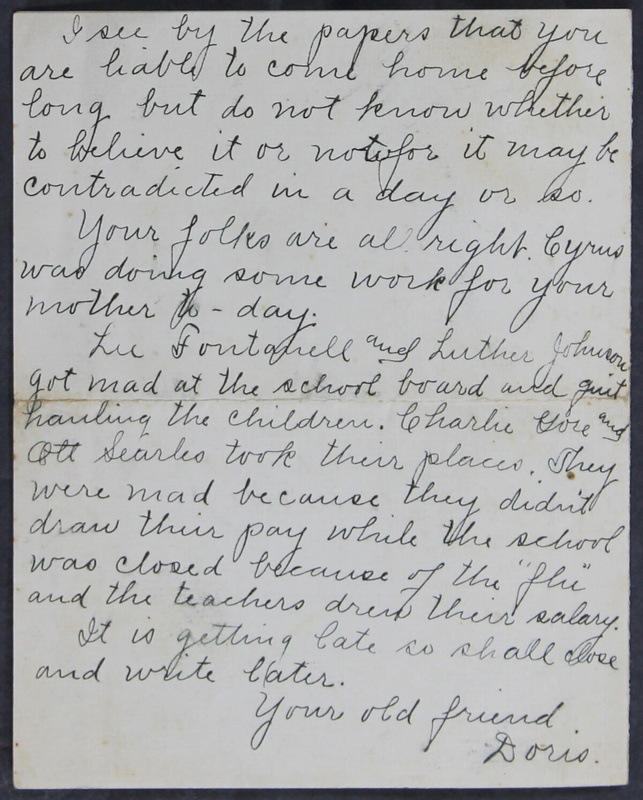 I see by the papers that you
are liable to come home before
long but do not know whether
to believe it or not for it may be
contradicted in a day or so.
Your folks are all right. Cyrus
was doing some work for your
mother to-day.
Lee Fontanell and Luther Johnson
got mad at the school board and quit
hauling the children. Charlie Gose and
Ott Searles took their places. They
were mad because they didn't
draw their pay while the school
was closed because of the "flu"
and the teachers drew their salary.
It is getting late so shall close
and write later.
Your old friend
Doris.